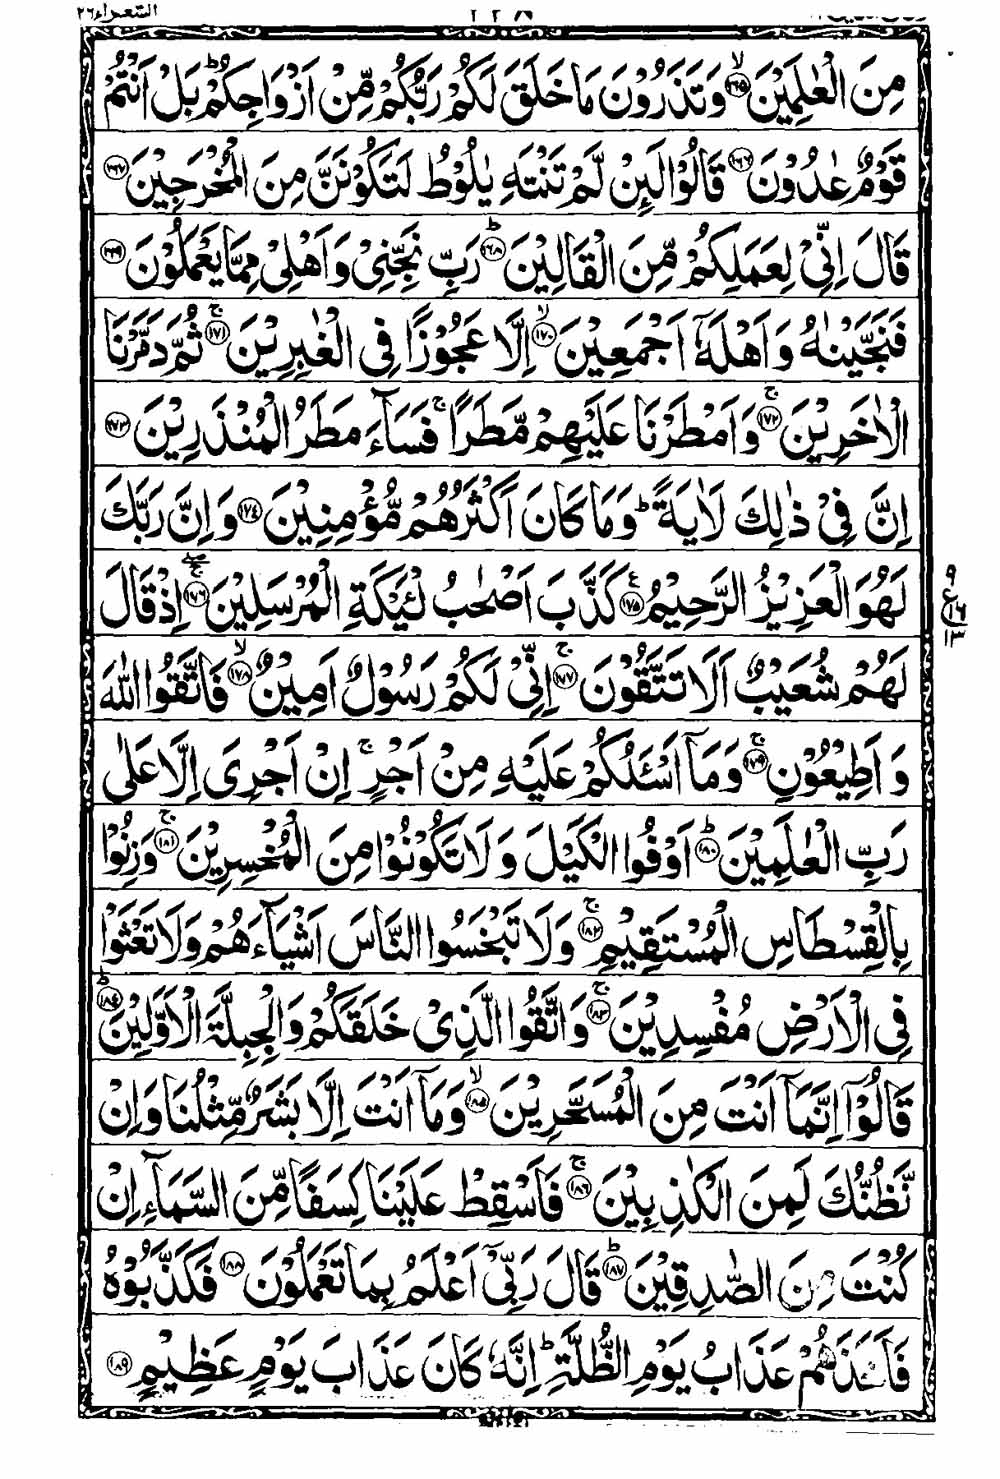 الشعراء ٢٦
مِنَ الْعٰلَمِيْنَ ۙ‏﴿۱۶۵﴾ وَ تَذَرُوْنَ مَا خَلَقَ لَكُمْ رَبُّكُمْ مِّنْ اَزْوَاجِكُمْ ؕ بَلْ اَنْتُمْ
قَوْمٌ عٰدُوْنَ ﴿۱۶۶﴾ قَالُوْا لَىِٕنْ لَّمْ تَنْتَهِ يٰلُوْطُ لَتَكُوْنَنَّ مِنَ الْمُخْرَجِيْنَ ﴿۱۶۷﴾
قَالَ اِنِّىْ لِعَمَلِكُمْ مِّنَ الْقَالِيْنَ ؕ﴿۱۶۸﴾ رَبِّ نَجِّنِىْ وَ اَهْلِىْ مِمَّا يَعْمَلُوْنَ ﴿۱۶۹﴾
فَنَجَّيْنٰهُ وَ اَهْلَهٗۤ اَجْمَعِيْنَ ۙ﴿۱۷۰﴾ اِلَّا عَجُوْزًا فِى الْغٰبِرِيْنَ ۚ﴿۱۷۱﴾ ثُمَّ دَمَّرْنَا
الْاٰخَرِيْنَ ۚ﴿۱۷۲﴾ وَ اَمْطَرْنَا عَلَيْهِمْ مَّطَرًا ۚ فَسَآءَ مَطَرُ الْمُنْذَرِيْنَ ﴿۱۷۳﴾
اِنَّ فِىْ ذٰلِكَ لَاٰيَةً ؕ وَ مَا كَانَ اَكْثَرُهُمْ مُّؤْمِنِيْنَ ﴿۱۷۴﴾ وَ اِنَّ رَبَّكَ
لَهُوَ الْعَزِيْزُ الرَّحِيْمُ ﴿۱۷۵﴾ ع كَذَّبَ اَصْحٰبُ لْئَيْكَةِ الْمُرْسَلِيْنَ ۚۖ﴿۱۷۶﴾ اِذْ قَالَ
٩ ع ١٦ ١٣
لَهُمْ شُعَيْبٌ اَلَا تَتَّقُوْنَ ۚ﴿۱۷۷﴾ اِنِّىْ لَكُمْ رَسُوْلٌ اَمِيْنٌ ۙ﴿۱۷۸﴾ فَاتَّقُوا اللّٰهَ
وَ اَطِيْعُوْنِ ۚ﴿۱۷۹﴾ وَ مَاۤ اَسْئَلُكُمْ عَلَيْهِ مِنْ اَجْرٍ ۚ اِنْ اَجْرِىَ اِلَّا عَلٰى
رَبِّ الْعٰلَمِيْنَ ؕ﴿۱۸۰﴾ اَوْفُوا الْكَيْلَ وَ لَا تَكُوْنُوْا مِنَ الْمُخْسِرِيْنَ ۚ﴿۱۸۱﴾ وَزِنُوْا
بِالْقِسْطَاسِ الْمُسْتَقِيْمِ ۚ﴿۱۸۲﴾ وَلَا تَبْخَسُوا النَّاسَ اَشْيَآءَهُمْ وَلَا تَعْثَوْا
فِى الْاَرْضِ مُفْسِدِيْنَ ۚ﴿۱۸۳﴾ وَ اتَّقُوا الَّذِىْ خَلَقَكُمْ وَالْجِبِلَّةَ الْاَوَّلِيْنَ ؕ﴿۱۸۴﴾
قَالُوْۤا اِنَّمَاۤ اَنْتَ مِنَ الْمُسَحَّرِيْنَ ۙ﴿۱۸۵﴾ وَ مَاۤ اَنْتَ اِلَّا بَشَرٌ مِّثْلُنَا وَاِنْ
نَّظُنُّكَ لَمِنَ الْكٰذِبِيْنَ ۚ﴿۱۸۶﴾ فَاَسْقِطْ عَلَيْنَا كِسَفًا مِّنَ السَّمَآءِ اِنْ
كُنْتَ مِنَ الصّٰدِقِيْنَ ؕ﴿۱۸۷﴾ قَالَ رَبِّىْۤ اَعْلَمُ بِمَا تَعْمَلُوْنَ ﴿۱۸۸﴾ فَكَذَّبُوْهُ
فَاَخَذَهُمْ عَذَابُ يَوْمِ الظُّلَّةِ ؕ اِنَّهٗ كَانَ عَذَابَ يَوْمٍ عَظِيْمٍ ﴿۱۸۹﴾